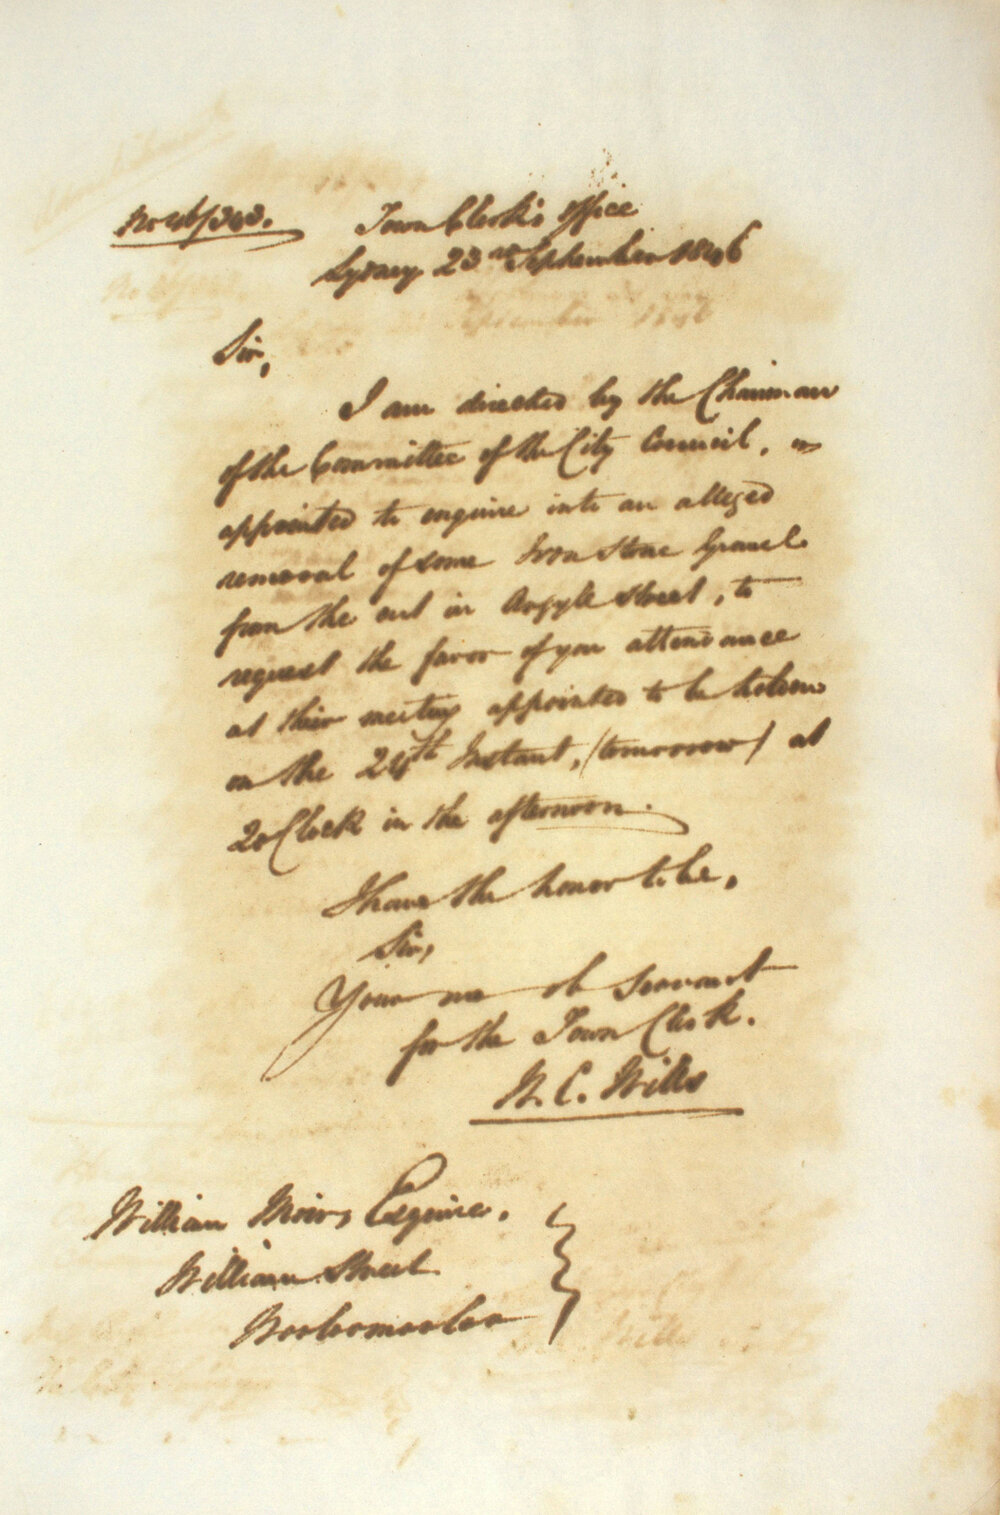 No 46/343.
Town Clerk's Office
Sydney 23rd September 1846
Sir,
I am directed by the Chairman
of the Committee of the City Council,
appointed to enquire into an alleged
removal of some Iron Stone Gravel
from the cut in Argyle Street, to
request the favor of you attendance
at their meeting appointed to be holden
on the 24th Instant, (tomorrow) at
2 o Clock in the afternoon.
I have the honor to be,
Sir,
Your mo ob Servant
for the Town Clerk.
W. C. Wills
William Moir, Esquire,
William Street
Woolomooloo